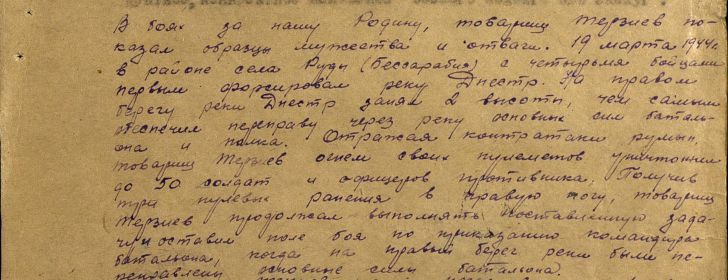 В боях за нашу Родину, товарищ Терзиев по-
казал образцы мужества и отваги. 19 марта 1944 г.
в районе села Руды (Бессарабия) с четырьмя бойцами
первым форсировал реку Днестр. На правом
берегу реки Днестр занял 2 высоты, чем самым
обеспечил переправу через реку основных сил баталь-
она и полка. Отражая контратаки румын,
товарищ Терзиев огнем своих пулеметов уничтожил
до 50 солдат и офицеров противника. Получив
три пулевых ранения в правую ногу, товарищ
Терзиев продолжал выполнять поставленную зада-
чу и оставил поле боя по приказанию командира
батальона, когда на правый берег реки были пе-
реправлены основные силы батальона.